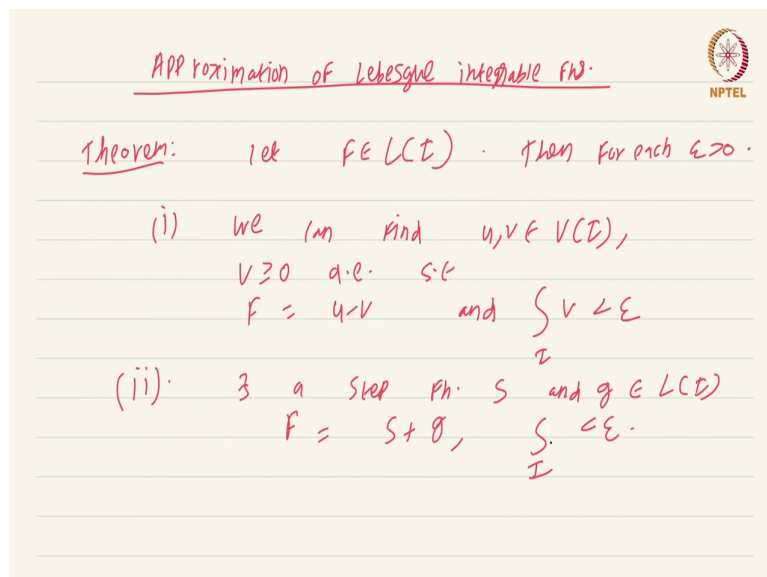 Approximation of Lebesgue integrable fns.
NPTEL
Theorem: let f ∈ L(I). Then for each ε>0.
(i) We can find u,v ∈ V(I),
v ≥ 0 a.e. s.t
f = u-v and ∫ v < ε
I
(ii). ∃ a step fn. s and g ∈ L(I)
f = s + g, ∫. < ε.
I